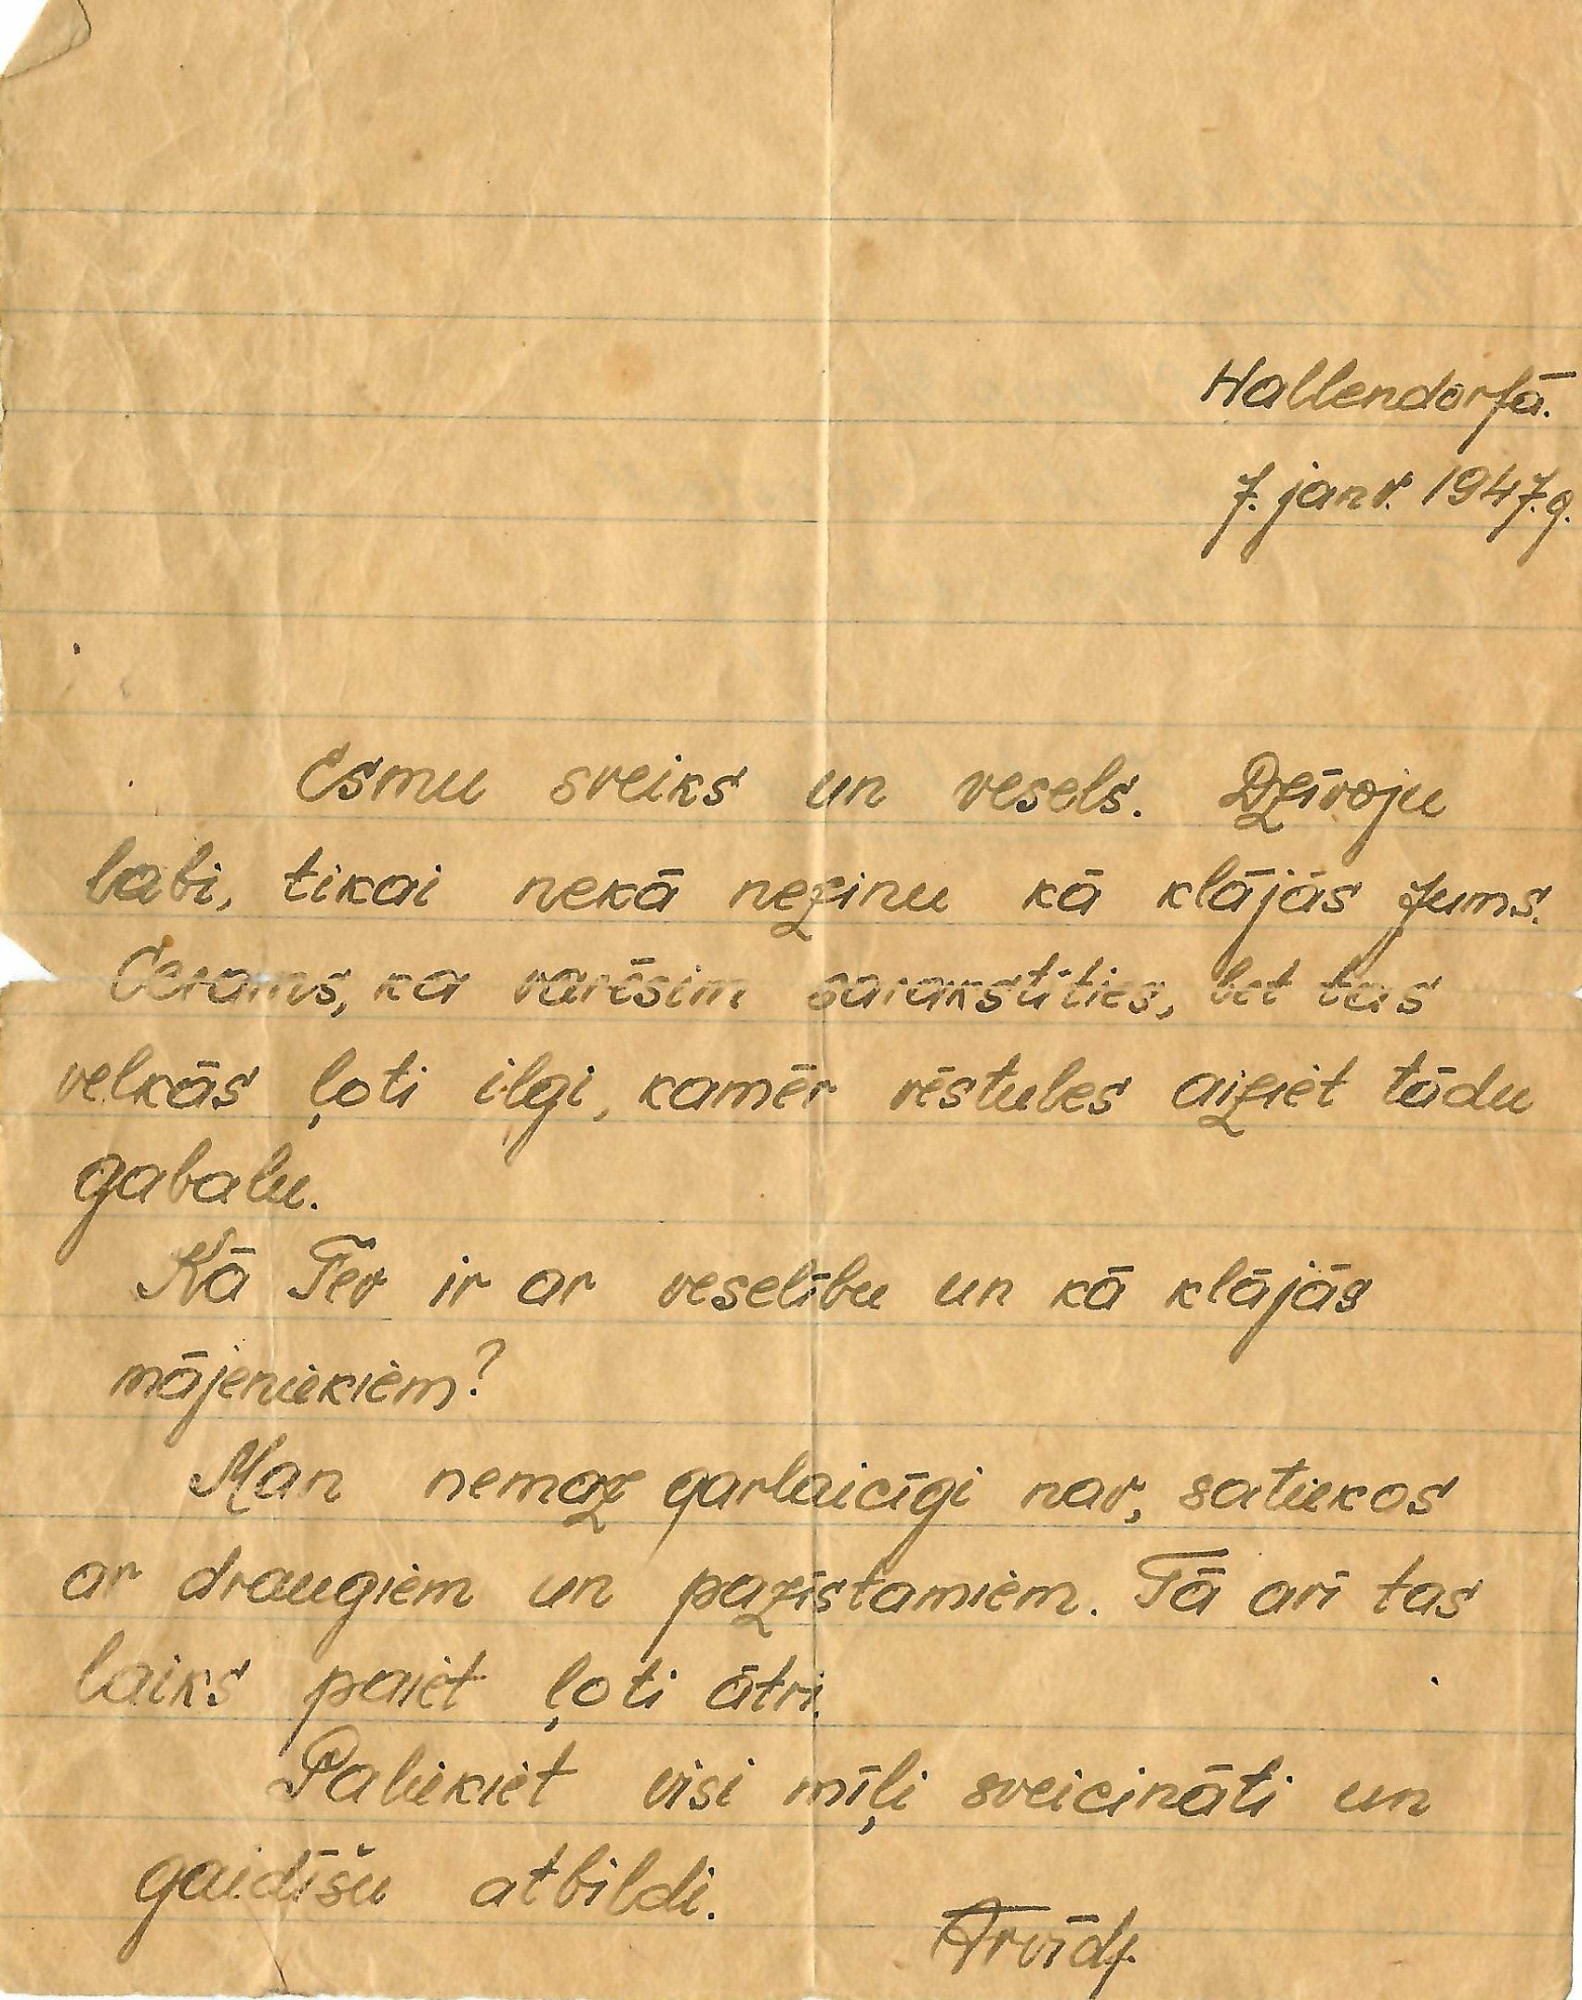 Hallendorfā.
7. janv. 1947.g.
Esmu sveiks un vesels. Dzīvoju
labi, tikai nekā nezinu kā klājās Jums.
Cerams, ka varēsim sarakstīties, bet tas
velkās ļoti ilgi, kamēr vēstules aiziet tādu
gabalu.
Kā Tev ir ar veselību un kā klājās
mājeniekiem?
Man nemaz garlaicīgi nav, satiekos
ar draugiem un pazīstamiem. Tā arī tas
laiks paiet ļoti ātri.
Paliekiet visi mīļi sveicināti un
gaidīšu atbildi.
Arvīds.